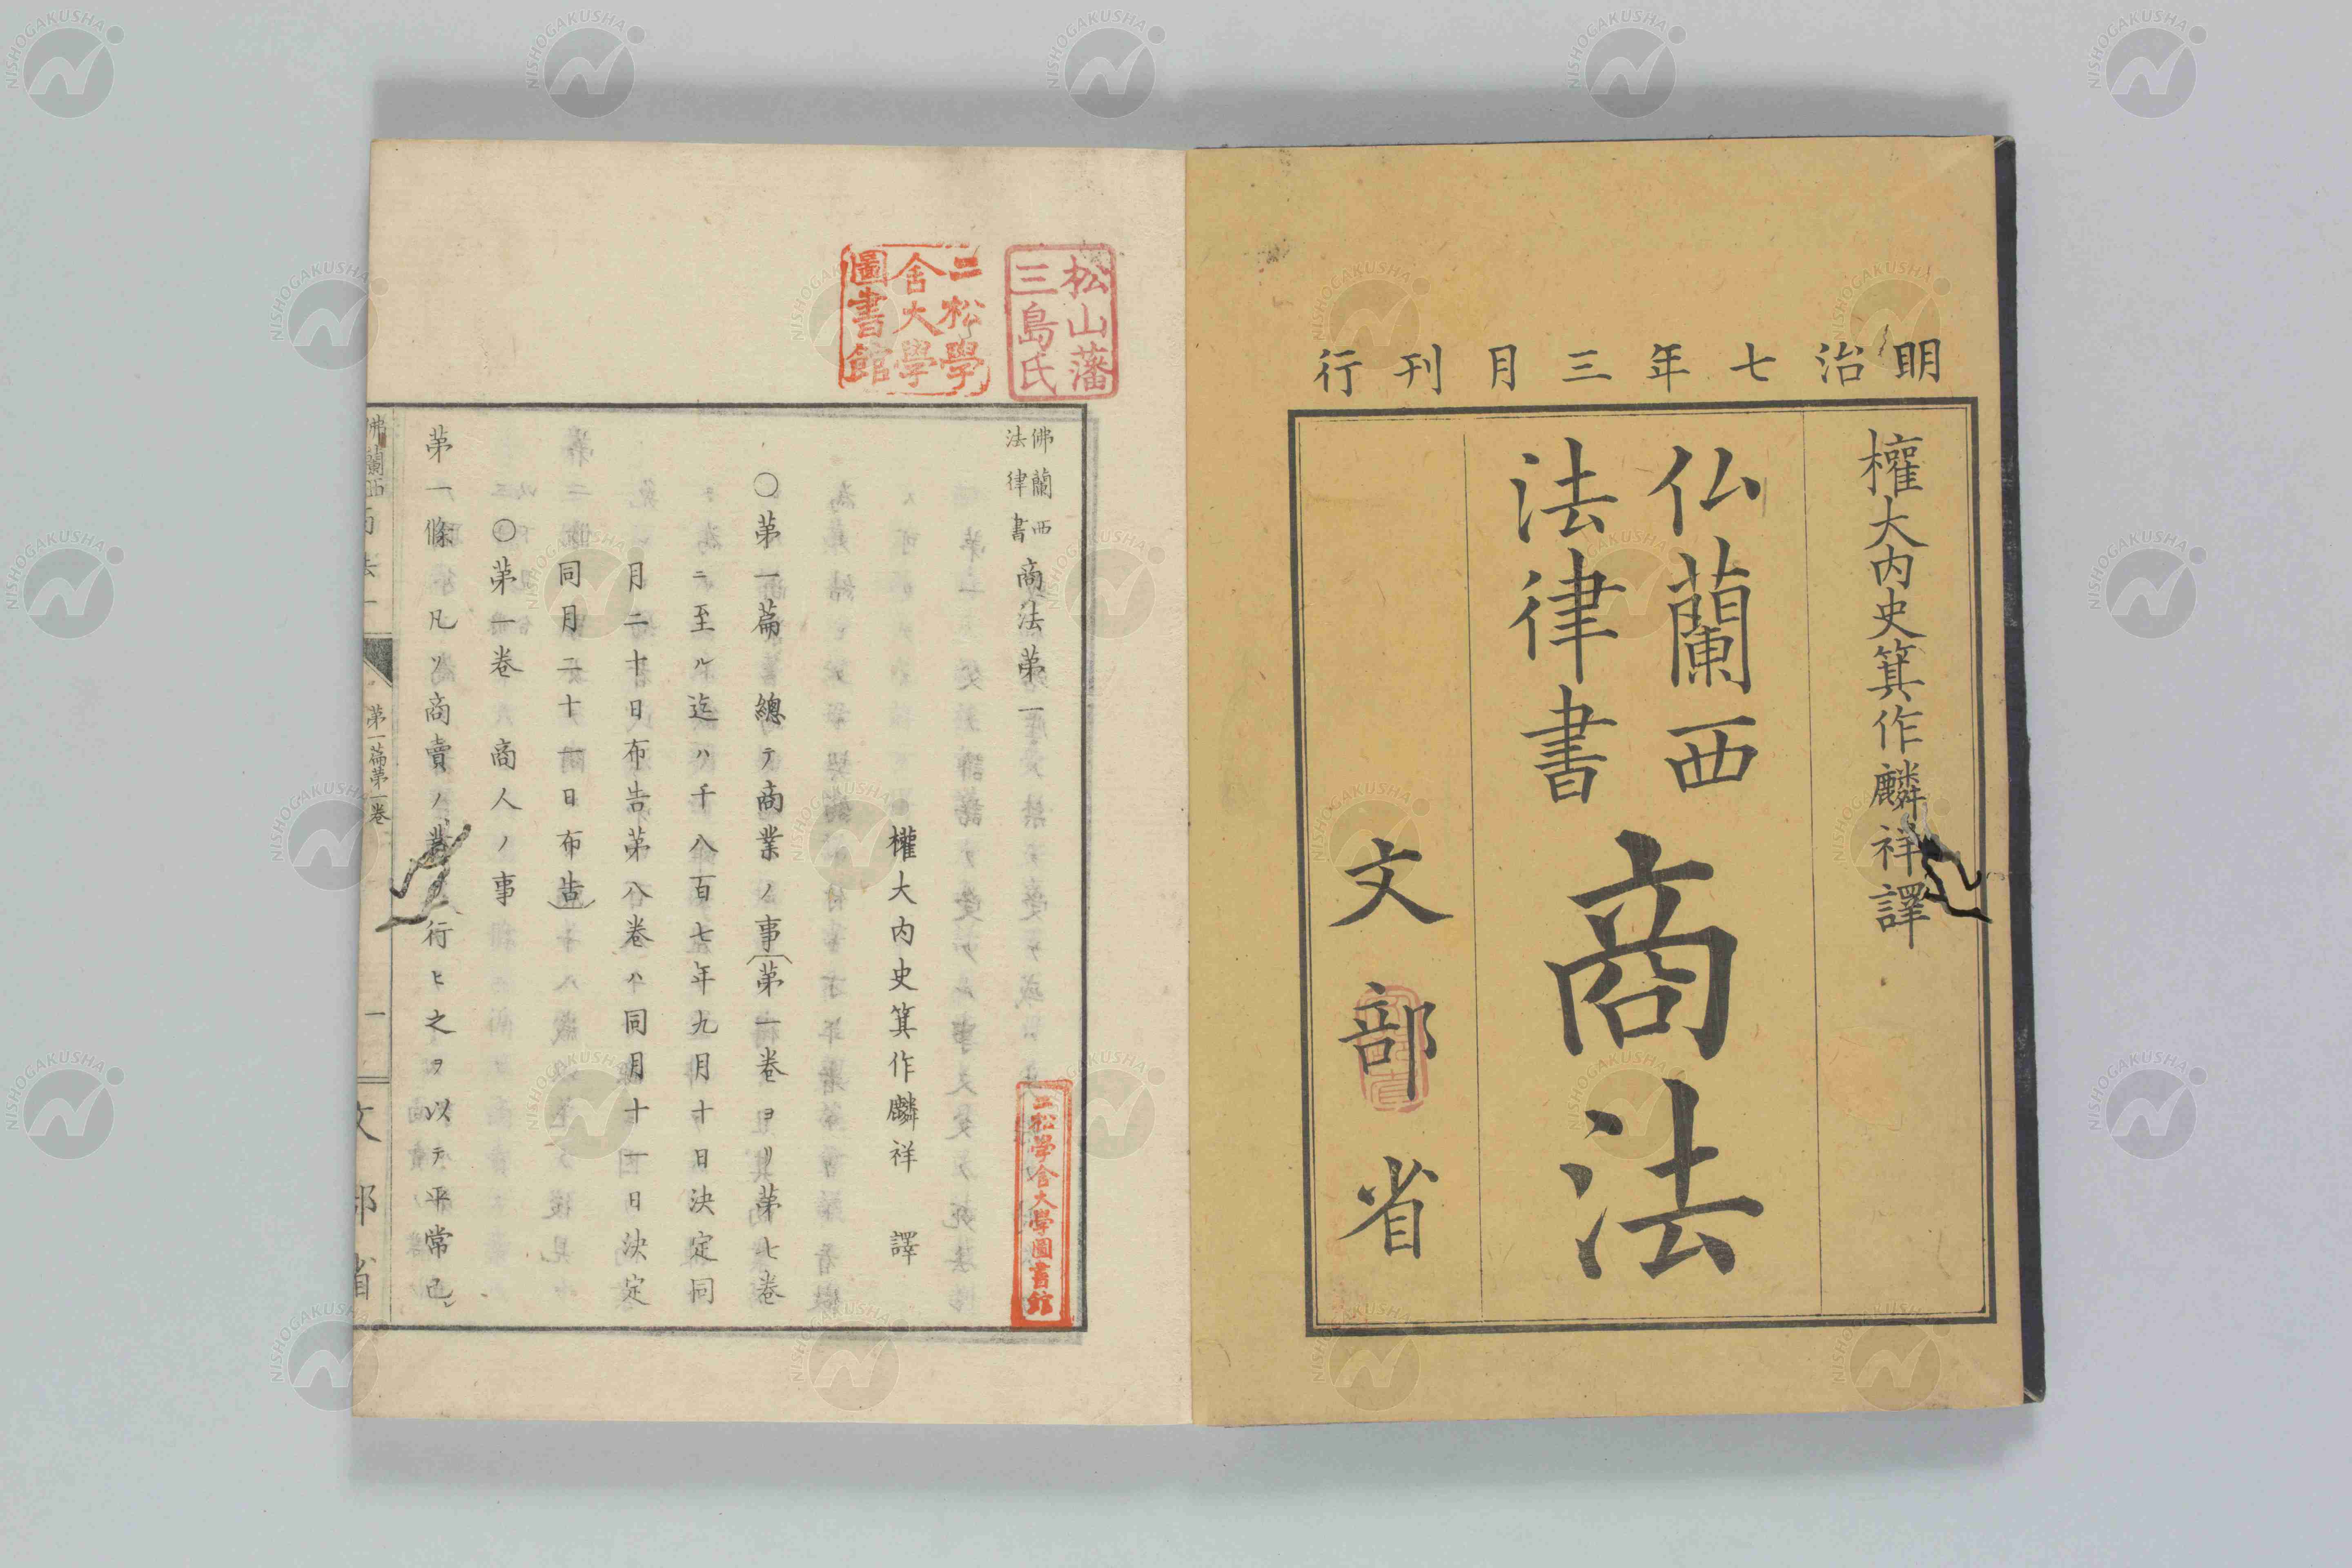 明治七年三月刊行
權大内史箕作麟祥譯
仏蘭西
法律書
商法
文部省
松山藩
三島氏
二松學
舍大學
圖書館
佛蘭西
法律書
商法第一
二松学舎大學圖書館
權大内史箕作麟祥 譯
〇第一篇 總テ商業ノ事(第一卷ヨリ第七卷
ニ至ル迄ハ千八百七年九月十日決定同
月二十日布告第八卷ハ同月十一日決定
同月二十一日布告)
〇第一卷 商人ノ事
第一條 凡ソ商賣ノ業ヲ行ヒ之ヲ以テ平常己
佛蘭西商法一
第一篇第一卷
一
文部省
NISHOGAKUSHA